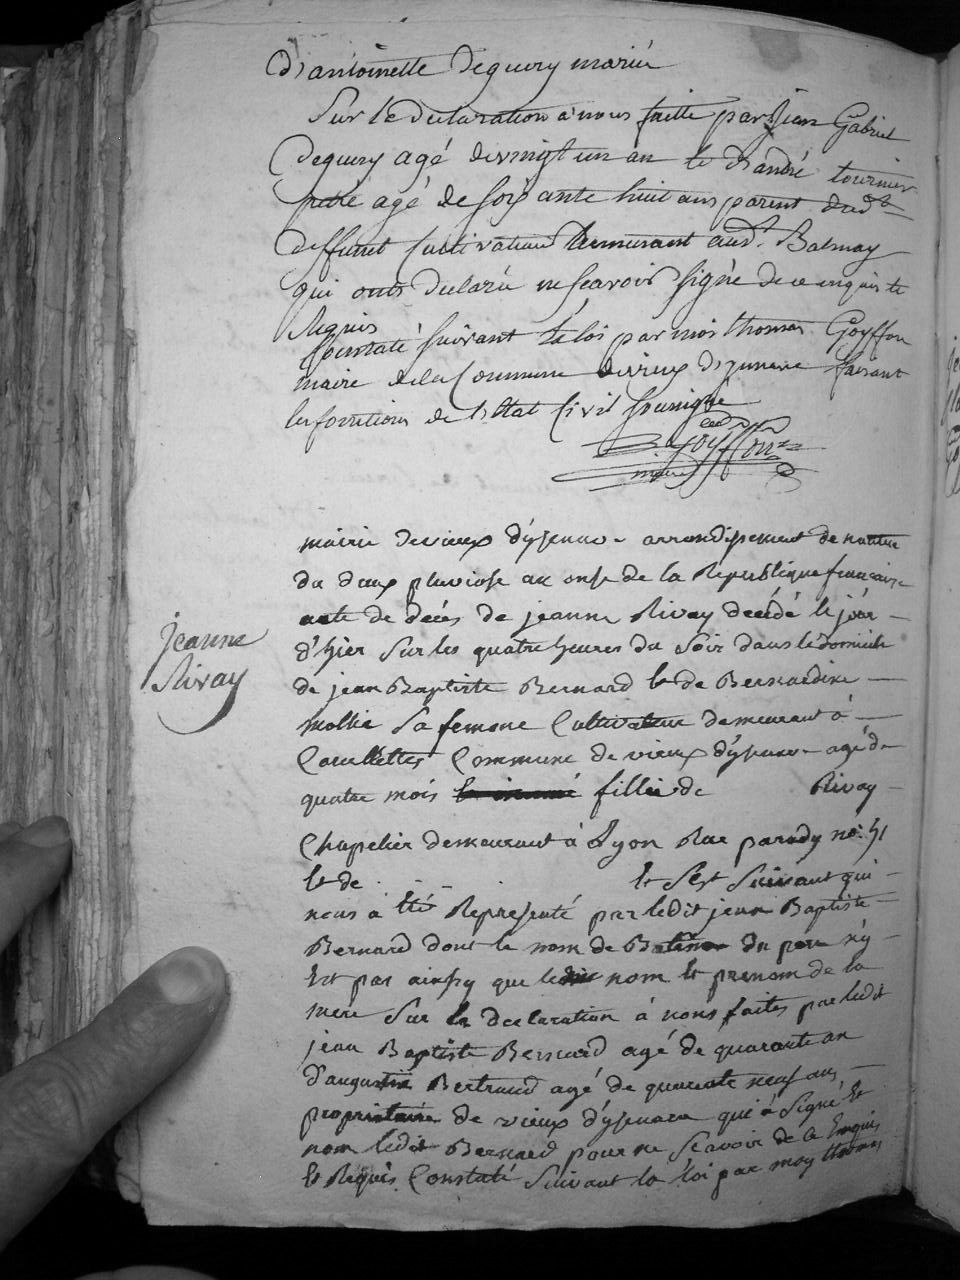 d'antoinette Deguery mariée
Sur la declaration a nous faitte par jean Gabriel
Deguery agé de vingt un an et d'andré tournier
agé de soix ante huit ans parent dud.
deffunt Cultivateur demeurant aud. Balmay
qui onts declaré ne scavoir signé de ce enquis et
Requis
Constaté suivant la loi par moi thomas Goyffon
maire de la Commune de vieux d'izenave faisant
les fonctions de l'Etat Civil soussigné
Goyffon
maire
mairie de vieux d'ysenave arrondissement de nantua
du deux pluviose an onse de la Republique francaise
acte de decés de jeanne Rivay decédé le jour
d'hier sur les quatre heures du soir dans le domicile
jeanne
Rivay
de jean Baptiste Bernard et de Bernardine
mollie sa femme Cultivateur demeurant à
Commune de vieux d'ysenave agé de
quatre mois fillie de Rivay
Chapelier demeurant à Lyon Rue parady no.
et de et s'est suivant qui
nous à été Représenté par ledit jean Baptiste
Bernard dont le nom de Batême du pere n'y
Est pas ainsy que le nom et prenom de la
mere sur la declaration à nous faites par ledit
jean Baptiste Bernard agé de quarante an
d'augustin Bertrand agé de quarente neuf ans
propriétaire de vieux d'ysenave qui à signé Et
nom ledit Bernard pour ne scavoir de ce Enquis
et Requis Constaté suivant la loi par moy thomas